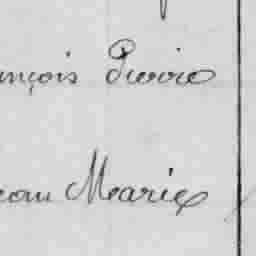 nçois Pierre
ean Marie